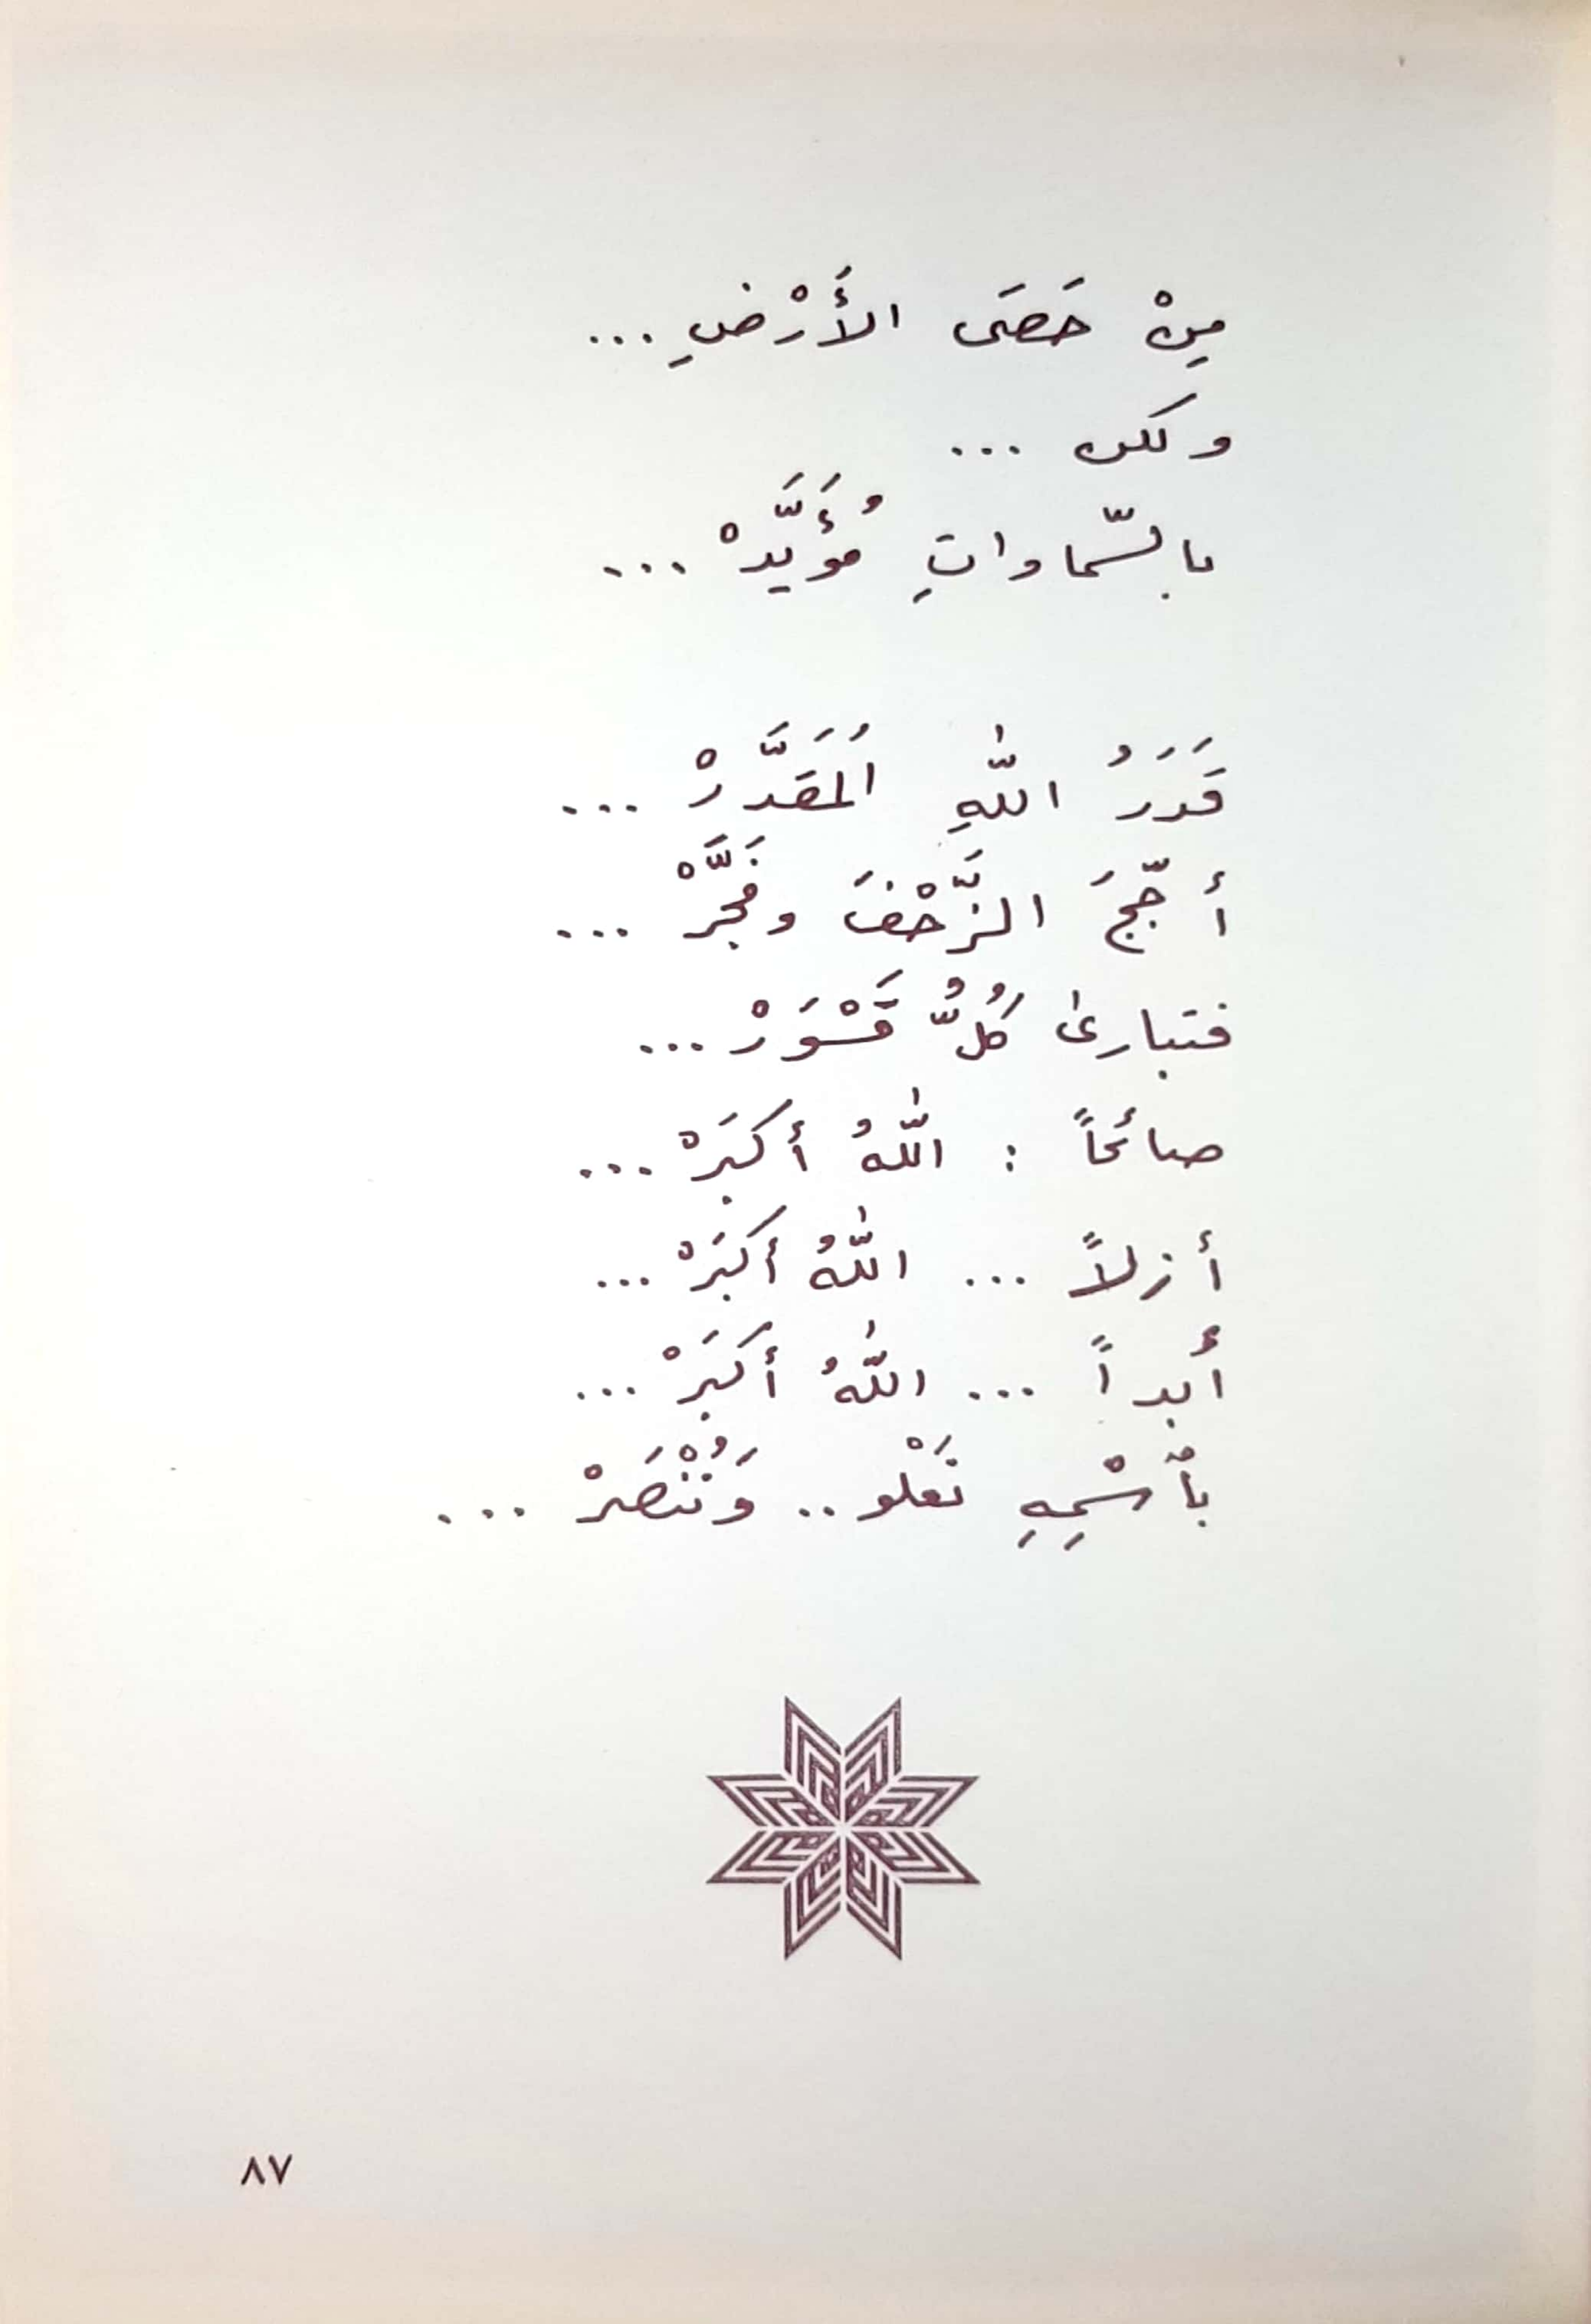 مِنْ حَصَى الأَرْضِ ...
ولكن ...
بالسّماواتِ مُؤَيَّدْ ...
قَدَرُ اللّٰهِ المُقَدَّرْ ...
أجّجَ الزَّحْفَ وفَجَّرْ ...
فتبارىٰ كُلُّ قَسْوَرْ ...
صائحاً : اللّٰهُ أكبَرْ ...
أزلاً ... اللّٰهُ أكبَرْ ...
أبداً ... اللّٰهُ أكبَرْ ...
بٱسْمِهِ نَعْلو .. وَنُنْصَرْ ...
٨٧